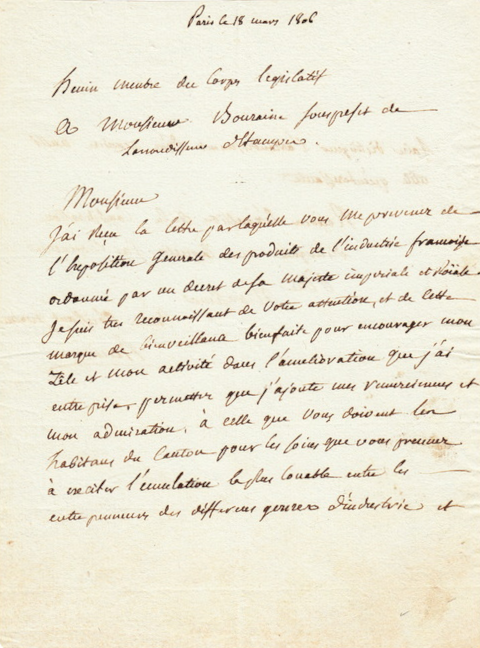 Paris le 18 mars 1806
henin membre du Corps legislatif
A Monsieur Bouraine sousprefet de
Larrondissement d'Etampes.
Monsieur
J'ai Reçu la lettre par laquelle vous me prevenez de
l'Exposition generale des produits de l'industrie françoise
ordonnée par un decret de sa majesté imperiale et Roiale
Je suis tres reconnoissant de votre attention, et de cette
marque de bienveillance bienfaite pour encourager mon
Zele et mon activité dans l'amélioration que j'ai
entreprise, permettez que j'ajoute mes remerciemens et
mon admiration, à celle que vous doivent les
habitans du Canton pour les soins que vous prennez
à exciter l'emulation la plus louable entre les
entrepreneurs des differens genres d'industrie et